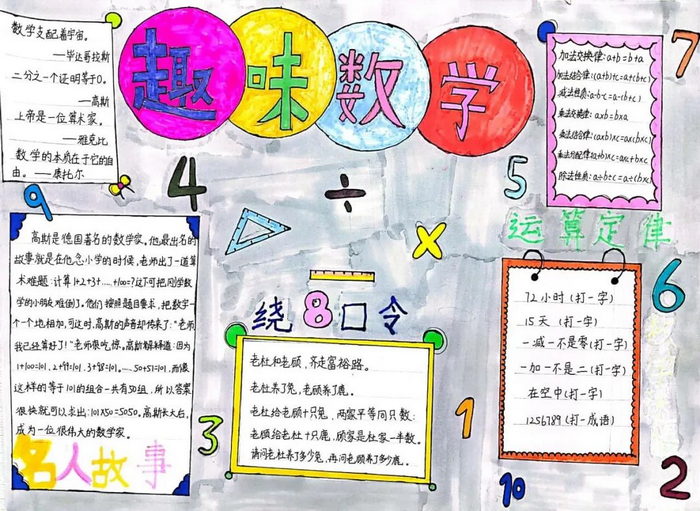 数学支配着宇宙。
——毕达哥拉斯
二分之一个证明等于0。
——高斯
上帝是一位算术家。
——雅克比
数学的本质在于它的自
由。——康托尔
趣味数学
加法交换律:a+b=b+a
加法结合律:(a+b)+c=a+(b+c)
减法性质:a-b-c=a-(b+c)
乘法交换律:axb=bxa
乘法结合律:(axb)xc=ax(bxc)
乘法分配律:(a+b)xc=axc+bxc
除法性质:a÷b÷c=a÷(bxc)
7
9
4
÷
5
×
运算定律
高斯是德国著名的数学家。他最出名的
故事就是在他念小学的时候,老师出了一道算
术难题:计算1+2+3+……+100=?这下可把同学数
学的小朋友难倒了。他们按照题目要求,把数字一
个一个地相加,可这时,高斯的声音却传来了:"老师
我已经算好了!"老师很吃惊。高斯解释道:因为
1+100=101,2+99=101,3+98=101,……50+51=101,而像
这样的等于101的组合一共有50组,所以答案
很快就可以求出:101X50=5050。高斯长大后,
成为一位很伟大的数学家。
名人故事
绕8口令
老杜和老顾,齐走富裕路。
老杜养了兔,老顾养了鹿。
老杜给老顾十只兔,两家平等同只数;
老顾给老杜十只鹿,顾家是杜家一半数。
请问老杜养了多少兔,再问老顾养了多少鹿。
72小时(打一字)
15天(打一字)
一减一不是零(打一字)
一加一不是二(打一字)
在空中(打一字)
1256789(打一成语)
6
3
1
10
2